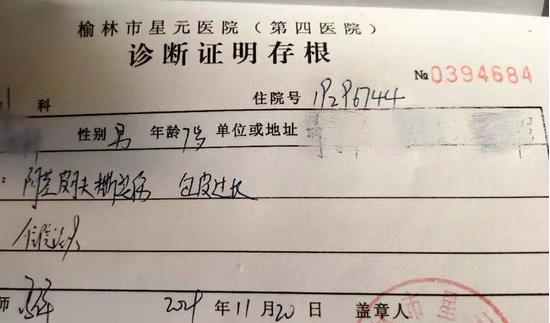 榆林市星元医院（第四医院）
诊断证明存根
№0394684
科 住院号
性别 男 年龄 7岁 单位或地址
阴茎皮肤撕裂伤 包皮过长
住院治疗
师 年 11 月 20 日 盖章人